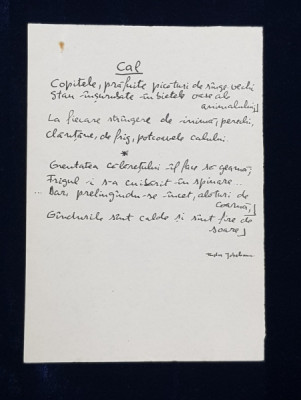 Cal
Copitele, prăfuite picături de sânge vechi
Stau înșurubate în bietele oase ale
animalului,
La fiecare strângere de inimă, perechi,
clănțăne, de frig, potcoavele calului.
*
Greutatea călărețului îl face să geamă,
Frigul i s-a cuibărit în spinare...
.. Dar, prelingându-se încet, alături de
coamă,
Gândurile sunt calde și sunt fire de
soare